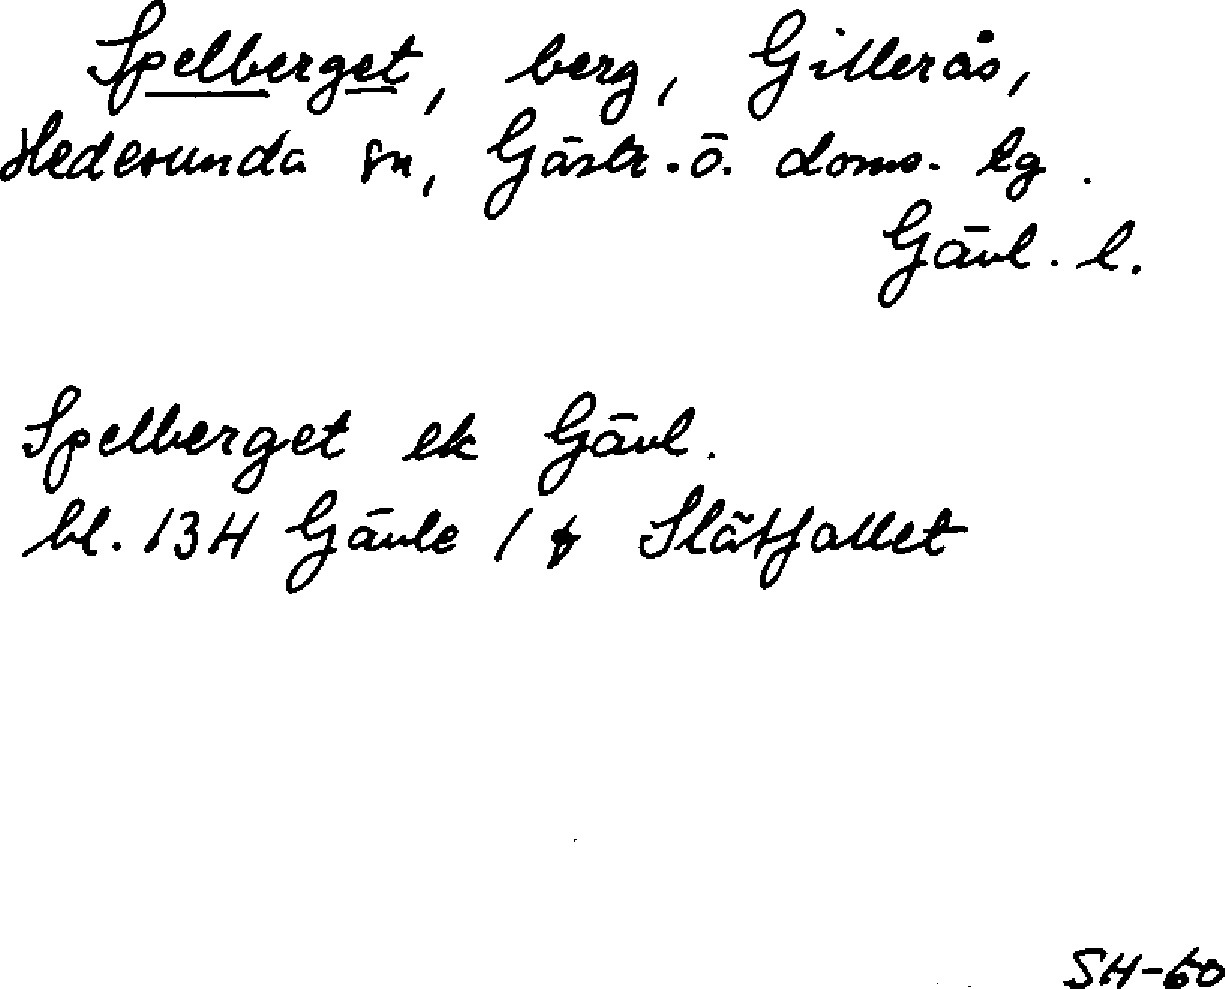 Spelberget, berg, Gillerås,
Hedesunda sn, Gästr. ö. doms. tg.
Gävl. l.
Spelberget ek Gävl.
bl. 13H Gävle 1 f Slätfallet
SH-60